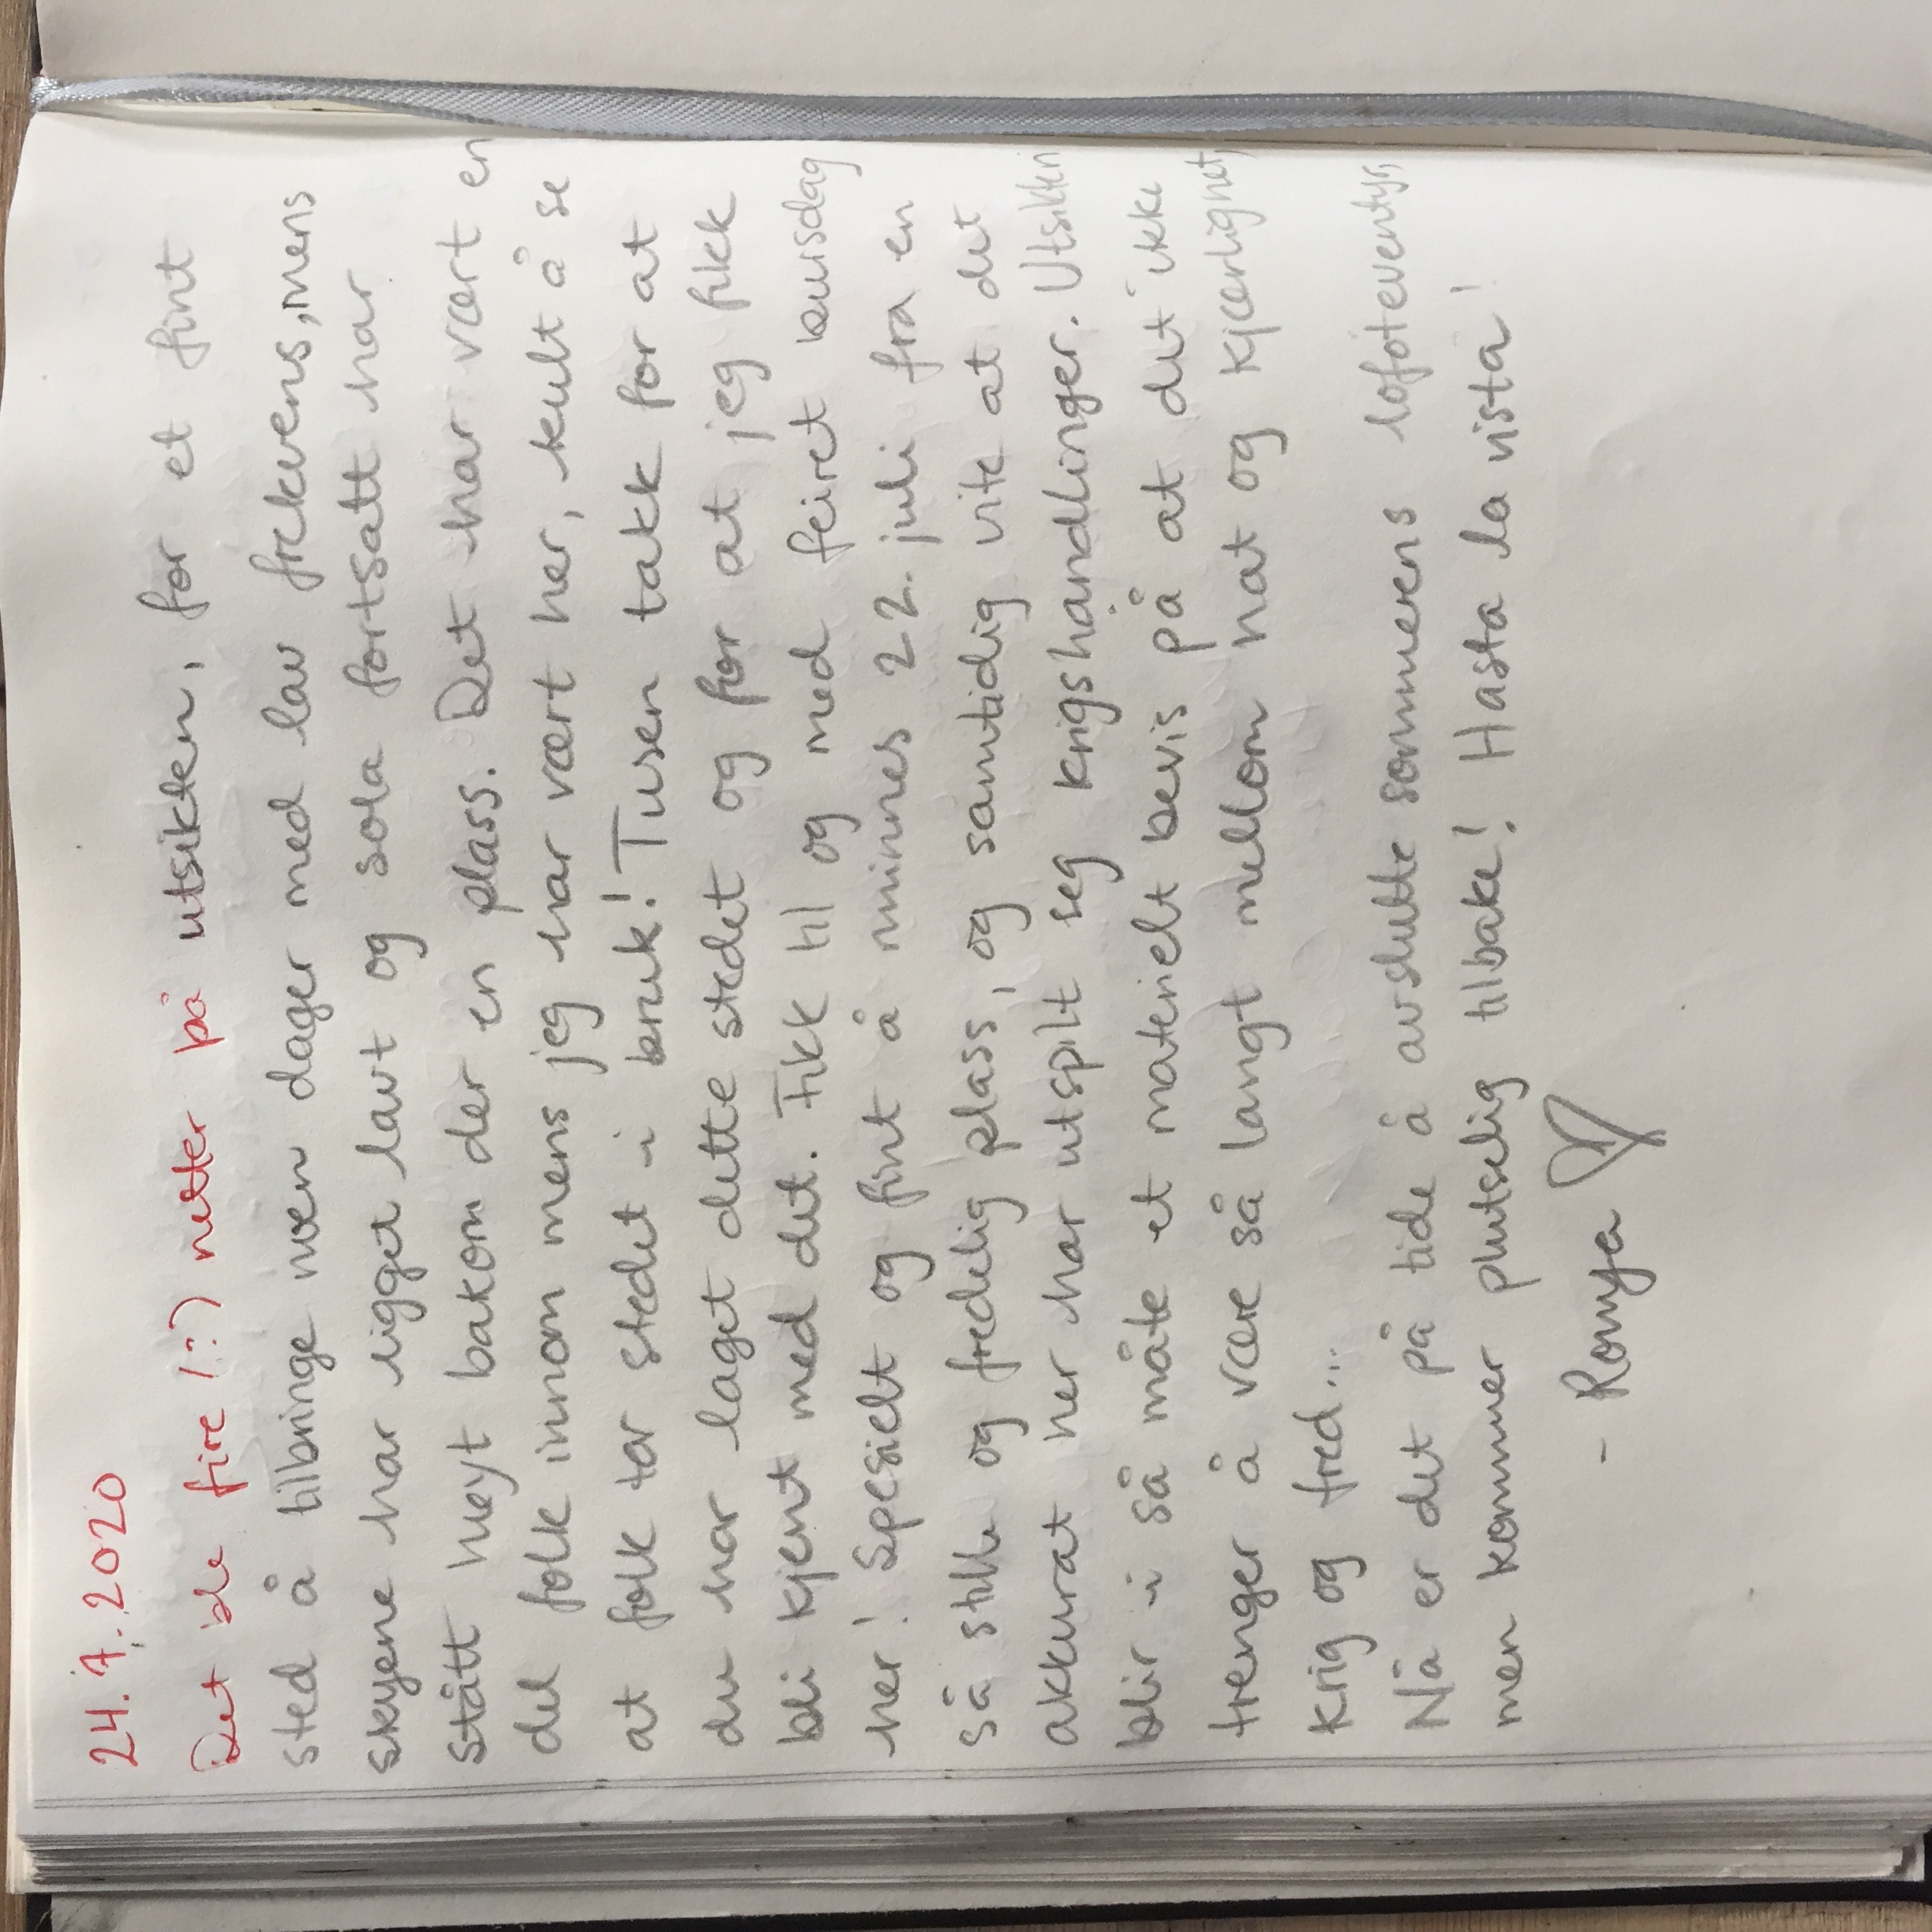 24.7.2020
Det ble fire (:) netter på utsikten, for et fint
sted å tilbringe noen dager med lav frekvens, mens
skyene har ligget lavt og sola fortsatt har
stått høyt bakom der en plass. Det har vært en
del folk innom mens jeg har vært her, kult å se
at folk tar stedet i bruk! Tusen takk for at
du har laget dette stedet og for at jeg fikk
bli kjent med det. Fikk til og med feiret bursdag
her! Spesielt og fint å minnes 22. juli fra en
så stille og fredelig plass, og samtidig vite at det
akkurat her har utspilt seg krigshandlinger. Utsikten
blir i så måte et materielt bevis på at det ikke
trenger å være så langt mellom hat og kjærlighet,
krig og fred...
Nå er det på tide å avslutte sommerens lofoteventyr,
men kommer plutselig tilbake! Hasta la vista!
- Ronya